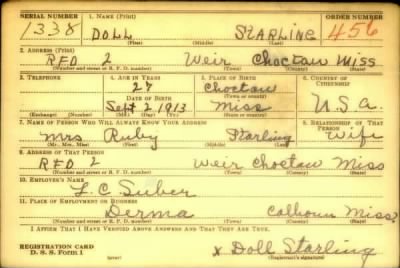 SERIAL NUMBER 1. NAME (Print) ORDER NUMBER
1338 DOLL STARLING 456
(First) (Middle) (Last)
2. ADDRESS (Print)
RFD 2 Weir Choctaw Miss
(Number and street or R. F. D. number) (Town) (County) (State)
3. TELEPHONE 4. AGE IN YEARS 5. PLACE OF BIRTH 6. COUNTRY OF CITIZENSHIP
27 Choctaw
DATE OF BIRTH (Town or county)
Sept 2 1913 Miss U.S.a.
(Exchange) (Number) (Mo.) (Day) (Yr.) (State or country)
7. NAME OF PERSON WHO WILL ALWAYS KNOW YOUR ADDRESS 8. RELATIONSHIP OF THAT PERSON
Mrs Ruby Starling Wife
(Mr., Mrs., Miss) (First) (Middle) (Last)
9. ADDRESS OF THAT PERSON
RFD 2 Weir Choctaw Miss
(Number and street or R. F. D. number) (Town) (County) (State)
10. EMPLOYER'S NAME
L. C. Suber
11. PLACE OF EMPLOYMENT OR BUSINESS
Derma Calhoun Miss.
(Number and street or R. F. D. number) (Town) (County) (State)
I AFFIRM THAT I HAVE VERIFIED ABOVE ANSWERS AND THAT THEY ARE TRUE.
REGISTRATION CARD
D. S. S. Form 1 x Doll Starling
(Registrant's signature)